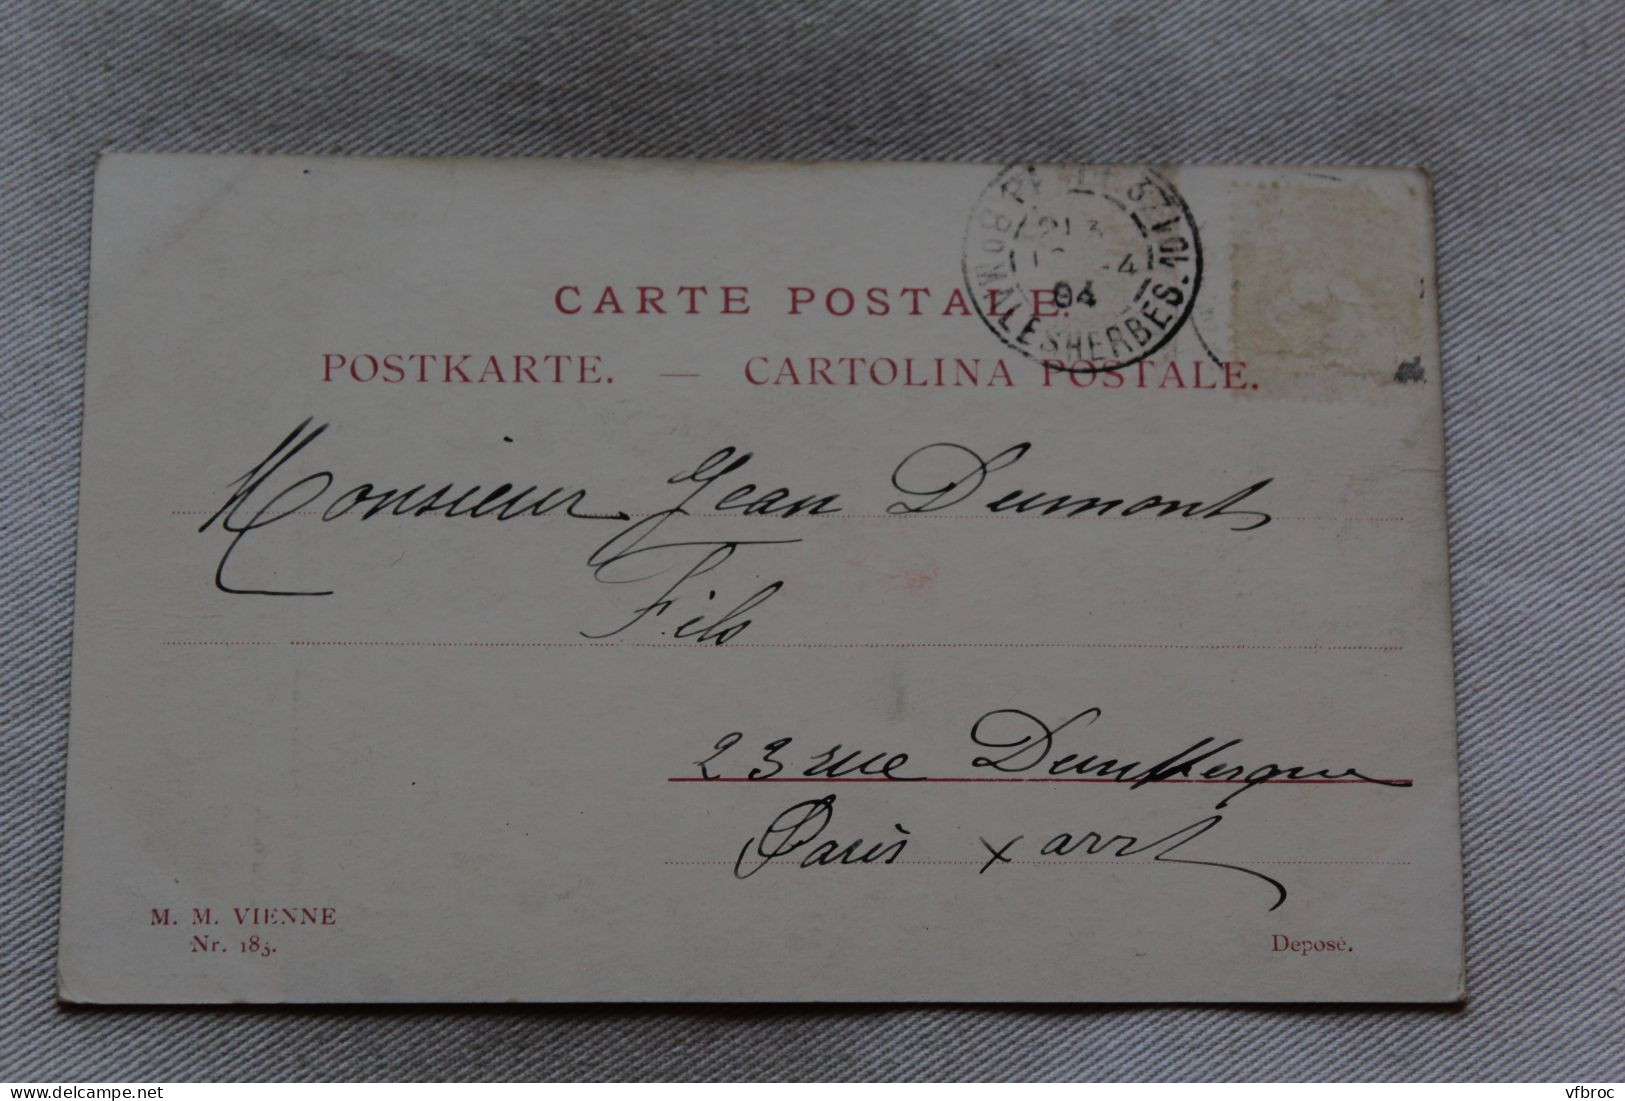 CARTE POSTALE.
POSTKARTE. — CARTOLINA POSTALE.
BOUL MALESHERBES.
04
Monsieur Jean Dumont
Fils
23 rue Dunkerque
Paris x arrt
M. M. VIENNE
Nr. 183.
Deposé.
vfbroc